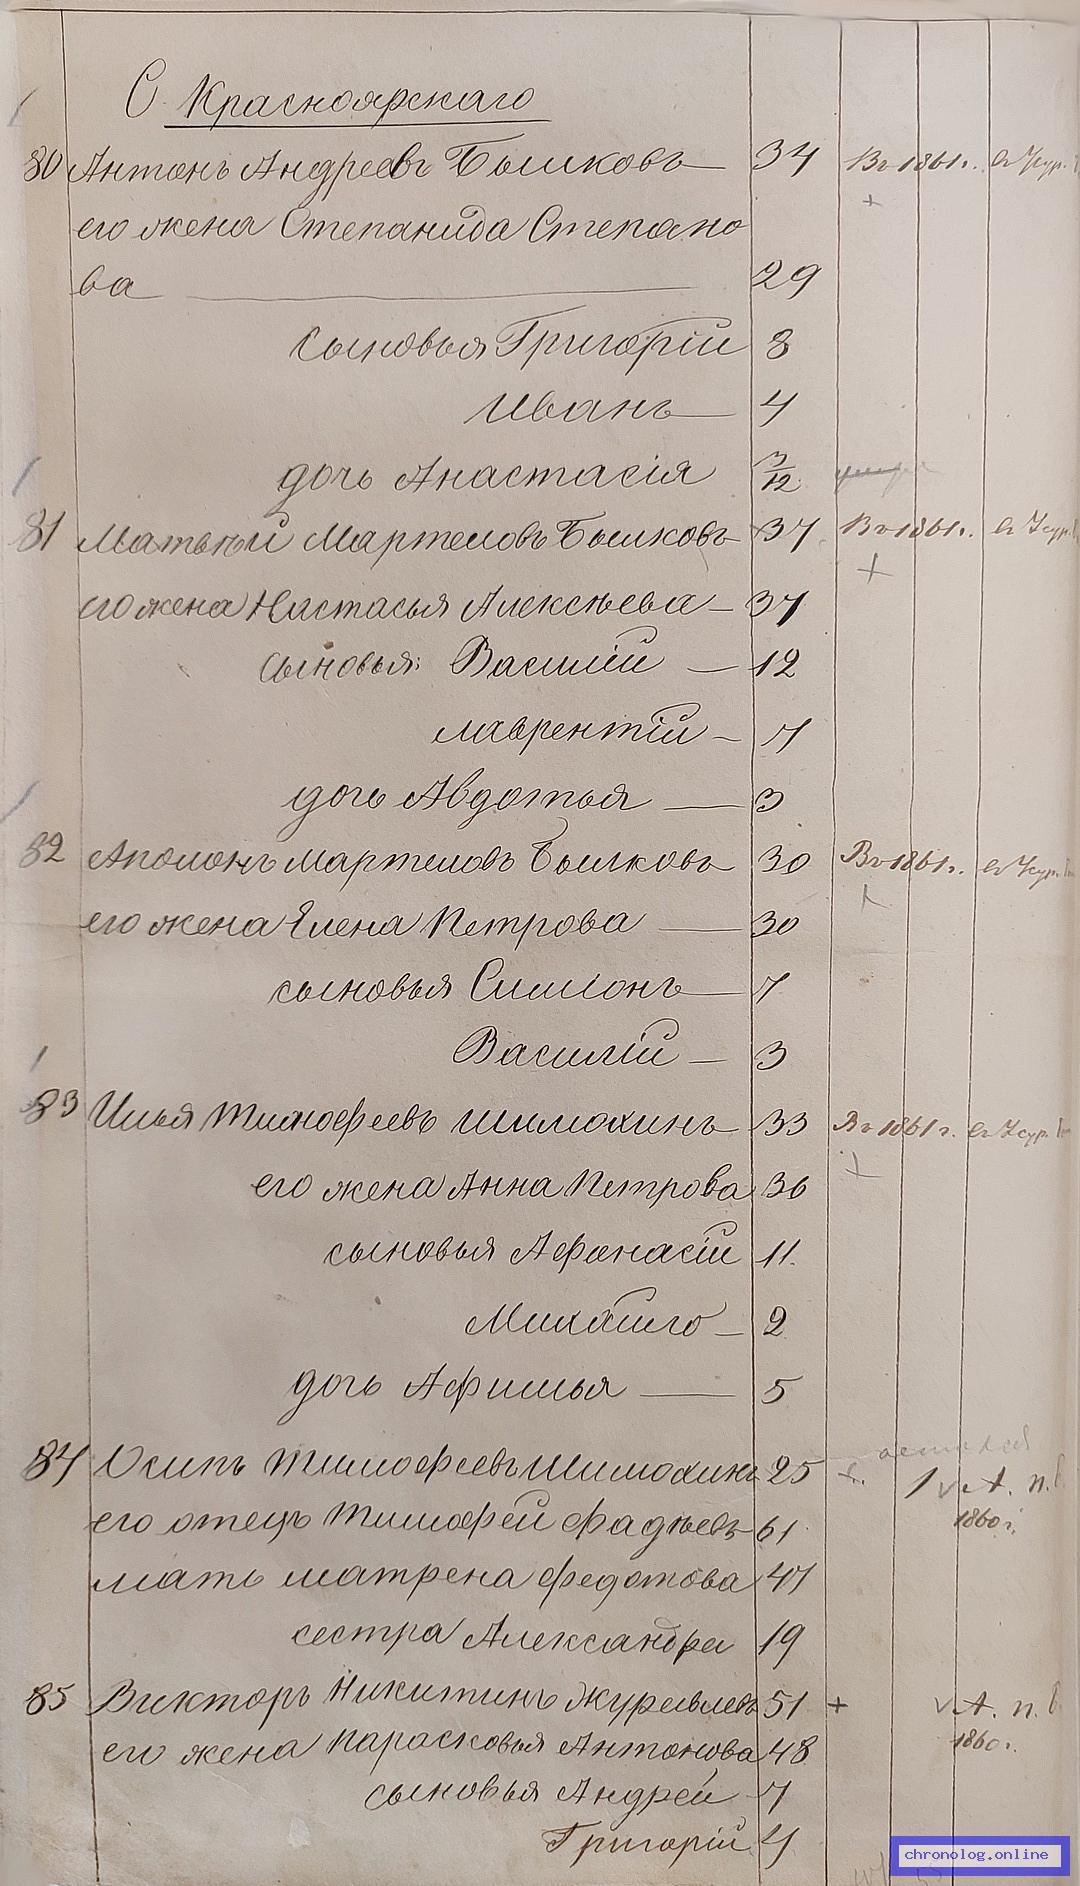 С. Красноярскаго
80 Антонъ Андреевъ Бышковъ 34 Въ 1861 г. в Усур.
его жена Степанида Степано
ва 29
сыновья Григорій 8
Иванъ 4
дочь Анастасія 3/12
81 Матвѣй Мартемовъ Бышковъ 37 Въ 1861 г. в Усур.
его жена Настасья Алексѣева 37
сыновья: Василій 12
Лаврентій 7
дочь Авдотья 3
82 Аполонъ Мартемовъ Бышковъ 30 Въ 1861 г. в Усур.
его жена Елена Петрова 30
сыновья Симіонъ 7
Василій 3
83 Илья Тимофеевъ Шимохинъ 33 Въ 1861 г. въ Усур.
его жена Анна Петрова 36
сыновья Афонасій 11.
Михайло 2
дочь Афимья 5
остался
84 Осипъ Тимофеевъ Шимохинъ 25 +. 1 v А. п.
его отецъ Тимофей Фадѣевъ 61 1860 г.
мать Матрена Федотова 47
сестра Александра 19
85 Викторъ Никитинъ Журавлевъ 51 + v А. п.
его жена Парасковья Антонова 48 1860 г.
сыновья Андрей 7
Григорій 4
chronolog.online